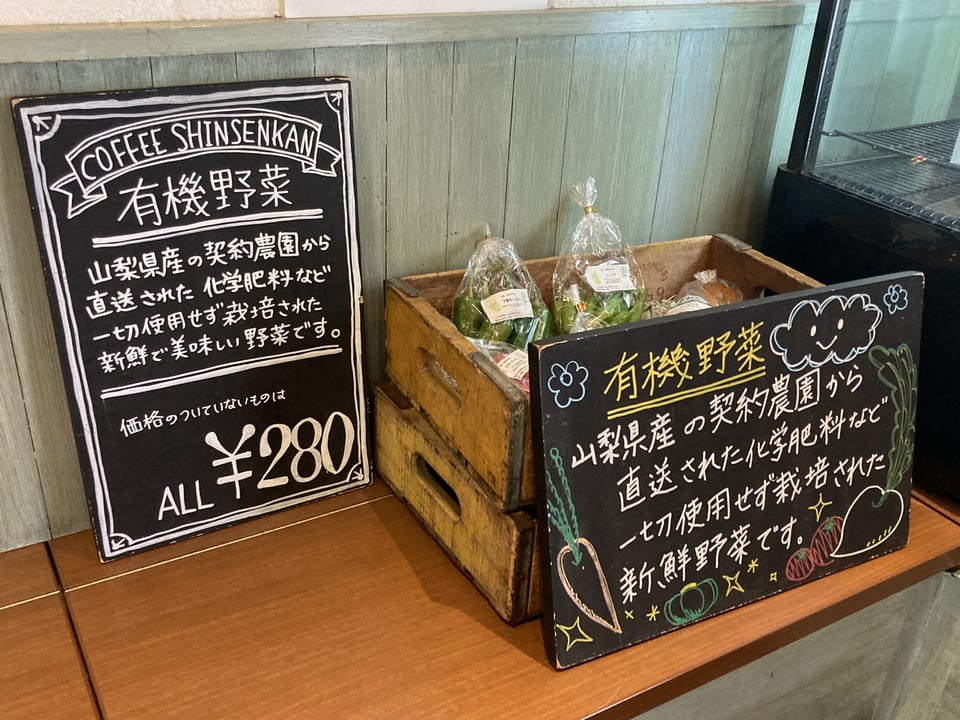 COFFEE SHINSENKAN
有機野菜
山梨県産の契約農園から
直送された化学肥料など
一切使用せず栽培された
新鮮で美味しい野菜です。
価格のついていないものは
ALL ¥280
有機野菜
山梨県産の契約農園から
直送された化学肥料など
一切使用せず栽培された
新鮮野菜です。